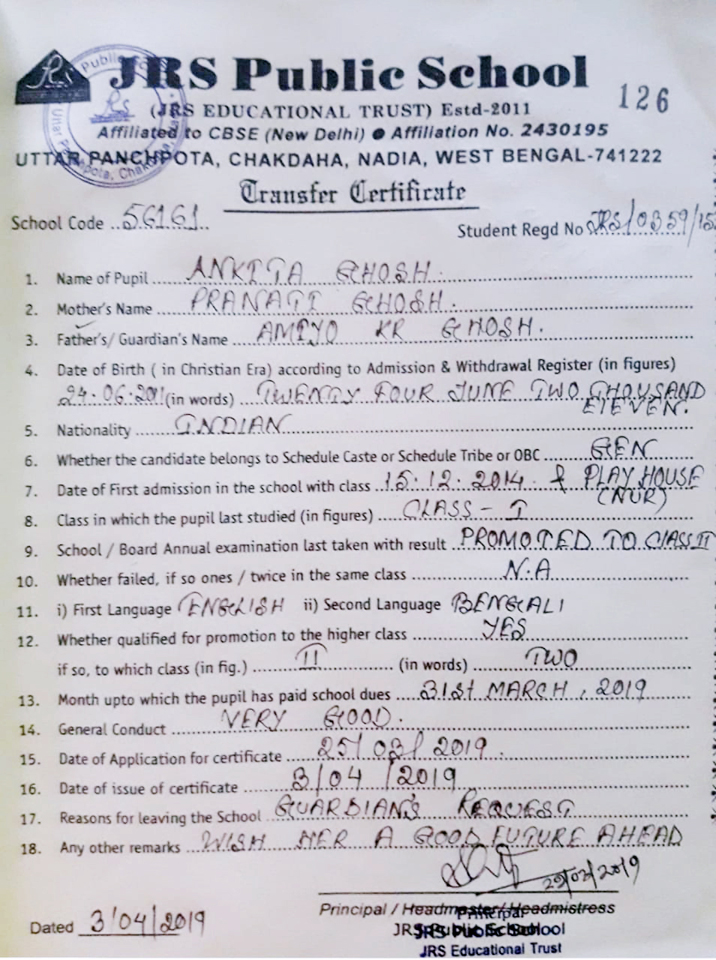 JRS Public School
126
(JRS EDUCATIONAL TRUST) Estd-2011
Affiliated to CBSE (New Delhi) ● Affiliation No. 2430195
UTTAR PANCHPOTA, CHAKDAHA, NADIA, WEST BENGAL-741222
Transfer Certificate
School Code ..56161..
Student Regd No JRS/0359/15
1. Name of Pupil ANKITA GHOSH.
2. Mother's Name PRANATI GHOSH.
3. Father's/ Guardian's Name AMIYO KR GHOSH.
4. Date of Birth ( in Christian Era) according to Admission & Withdrawal Register (in figures)
24.06.2011 (in words) TWENTY FOUR JUNE TWO THOUSAND
ELEVEN.
5. Nationality INDIAN
6. Whether the candidate belongs to Schedule Caste or Schedule Tribe or OBC GEN
7. Date of First admission in the school with class 15.12.2014 & PLAY HOUSE
(NUR)
8. Class in which the pupil last studied (in figures) CLASS - I
9. School / Board Annual examination last taken with result PROMOTED TO CLASS II
10. Whether failed, if so ones / twice in the same class N.A
11. i) First Language ENGLISH ii) Second Language BENGALI
12. Whether qualified for promotion to the higher class YES
if so, to which class (in fig.) II (in words) TWO
13. Month upto which the pupil has paid school dues 31st MARCH, 2019
14. General Conduct VERY GOOD.
15. Date of Application for certificate 25/03/2019.
16. Date of issue of certificate 3/04/2019
17. Reasons for leaving the School GUARDIAN'S REQUEST
18. Any other remarks WISH HER A GOOD FUTURE AHEAD
Principal / Headmaster/ Headmistress
Principal
Dated 3/04/2019
JRS Public School
JRS Educational Trust